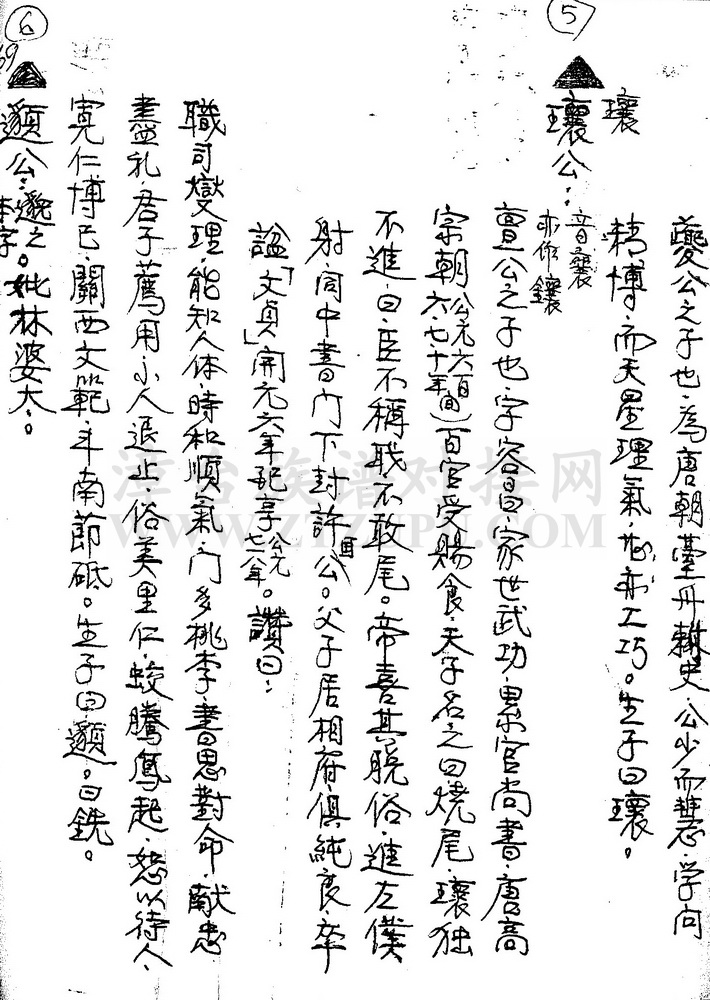 5
夔公之子也、為唐朝臺州刺史、公少而慧、学问
精博、而天星理氣、尤亦工巧。生子曰瓌。
瓌
瓌公：音襄 亦作鑲
亶公之子也、字容昌、家世武功、累官尚書、唐高
宗朝（公元六百六七十年间）百官受賜食、天子名之曰燒尾、瓌独
不進、曰、臣不稱职不敢尾。帝喜其脱俗、進左僕
射、同中書门下封許国公。父子居相府、俱純良、卒
諡「文貞」開元六年配享公元七一八年。讚曰：
職司燮理、能知人体、時和順氣、门多桃李、書思對命、献忠
盡礼、君子薦用、小人退止、俗美里仁、蛟騰鳳起、恕以待人、
寬仁博已、關西文範、斗南節砥。生子曰頲。曰銑。
6
頲公：
本字
之。妣林婆大。
泽台族谱对接网
WWW.ZTZUPU.COM